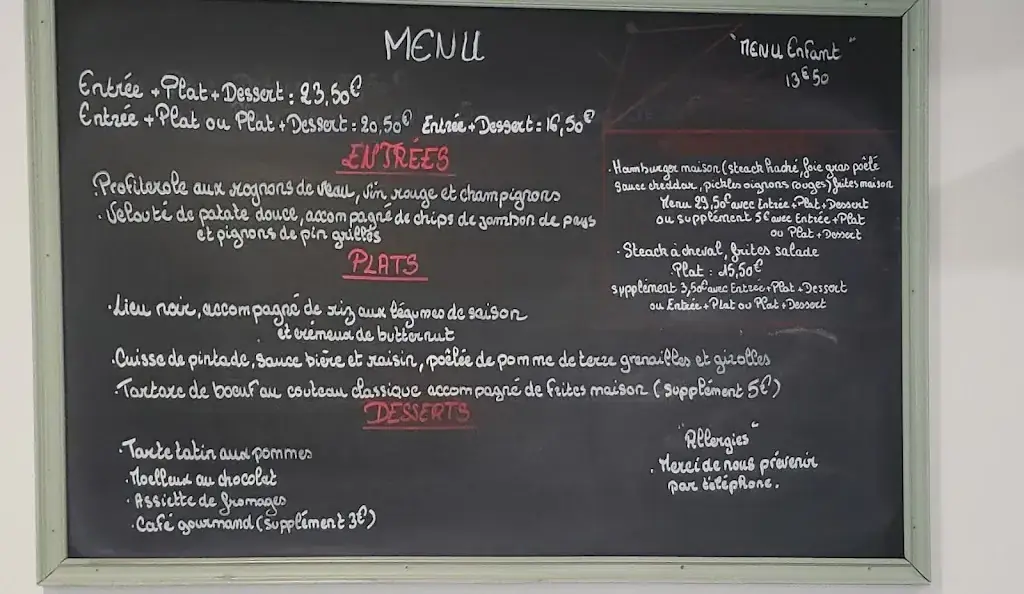 MENU
Entrée + Plat + Dessert : 23,50€
Entrée + Plat ou Plat + Dessert = 20,50€ Entrée + Dessert = 16,50€
ENTRÉES
. Profiterole aux rognons de veau, vin rouge et champignons
. Velouté de patate douce, accompagné de chips de jambon de pays
et pignons de pin grillés
PLATS
. Lieu noir, accompagné de riz aux légumes de saison
et crémeux de butternut
. Cuisse de pintade, sauce bière et raisin, poêlée de pomme de terre grenailles et girolles
. Tartare de boeuf au couteau classique accompagné de frites maison (supplément 5€)
DESSERTS
. Tarte tatin aux pommes
. Moelleux au chocolat
. Assiette de fromages
. Café gourmand (supplément 3€)
"MENU Enfant"
13€50
. Hamburger maison (steack haché, foie gras poêlé
sauce cheddar, pickles oignons rouges) frites maison
Menu 29,50€ avec Entrée + Plat + Dessert
ou supplément 5€ avec Entrée + Plat
ou Plat + Dessert
. Steack à cheval, frites salade
Plat : 15,50€
supplément 3,50€ avec Entrée + Plat + Dessert
ou Entrée + Plat ou Plat + Dessert
"Allergies"
. Merci de nous prévenir
par téléphone.